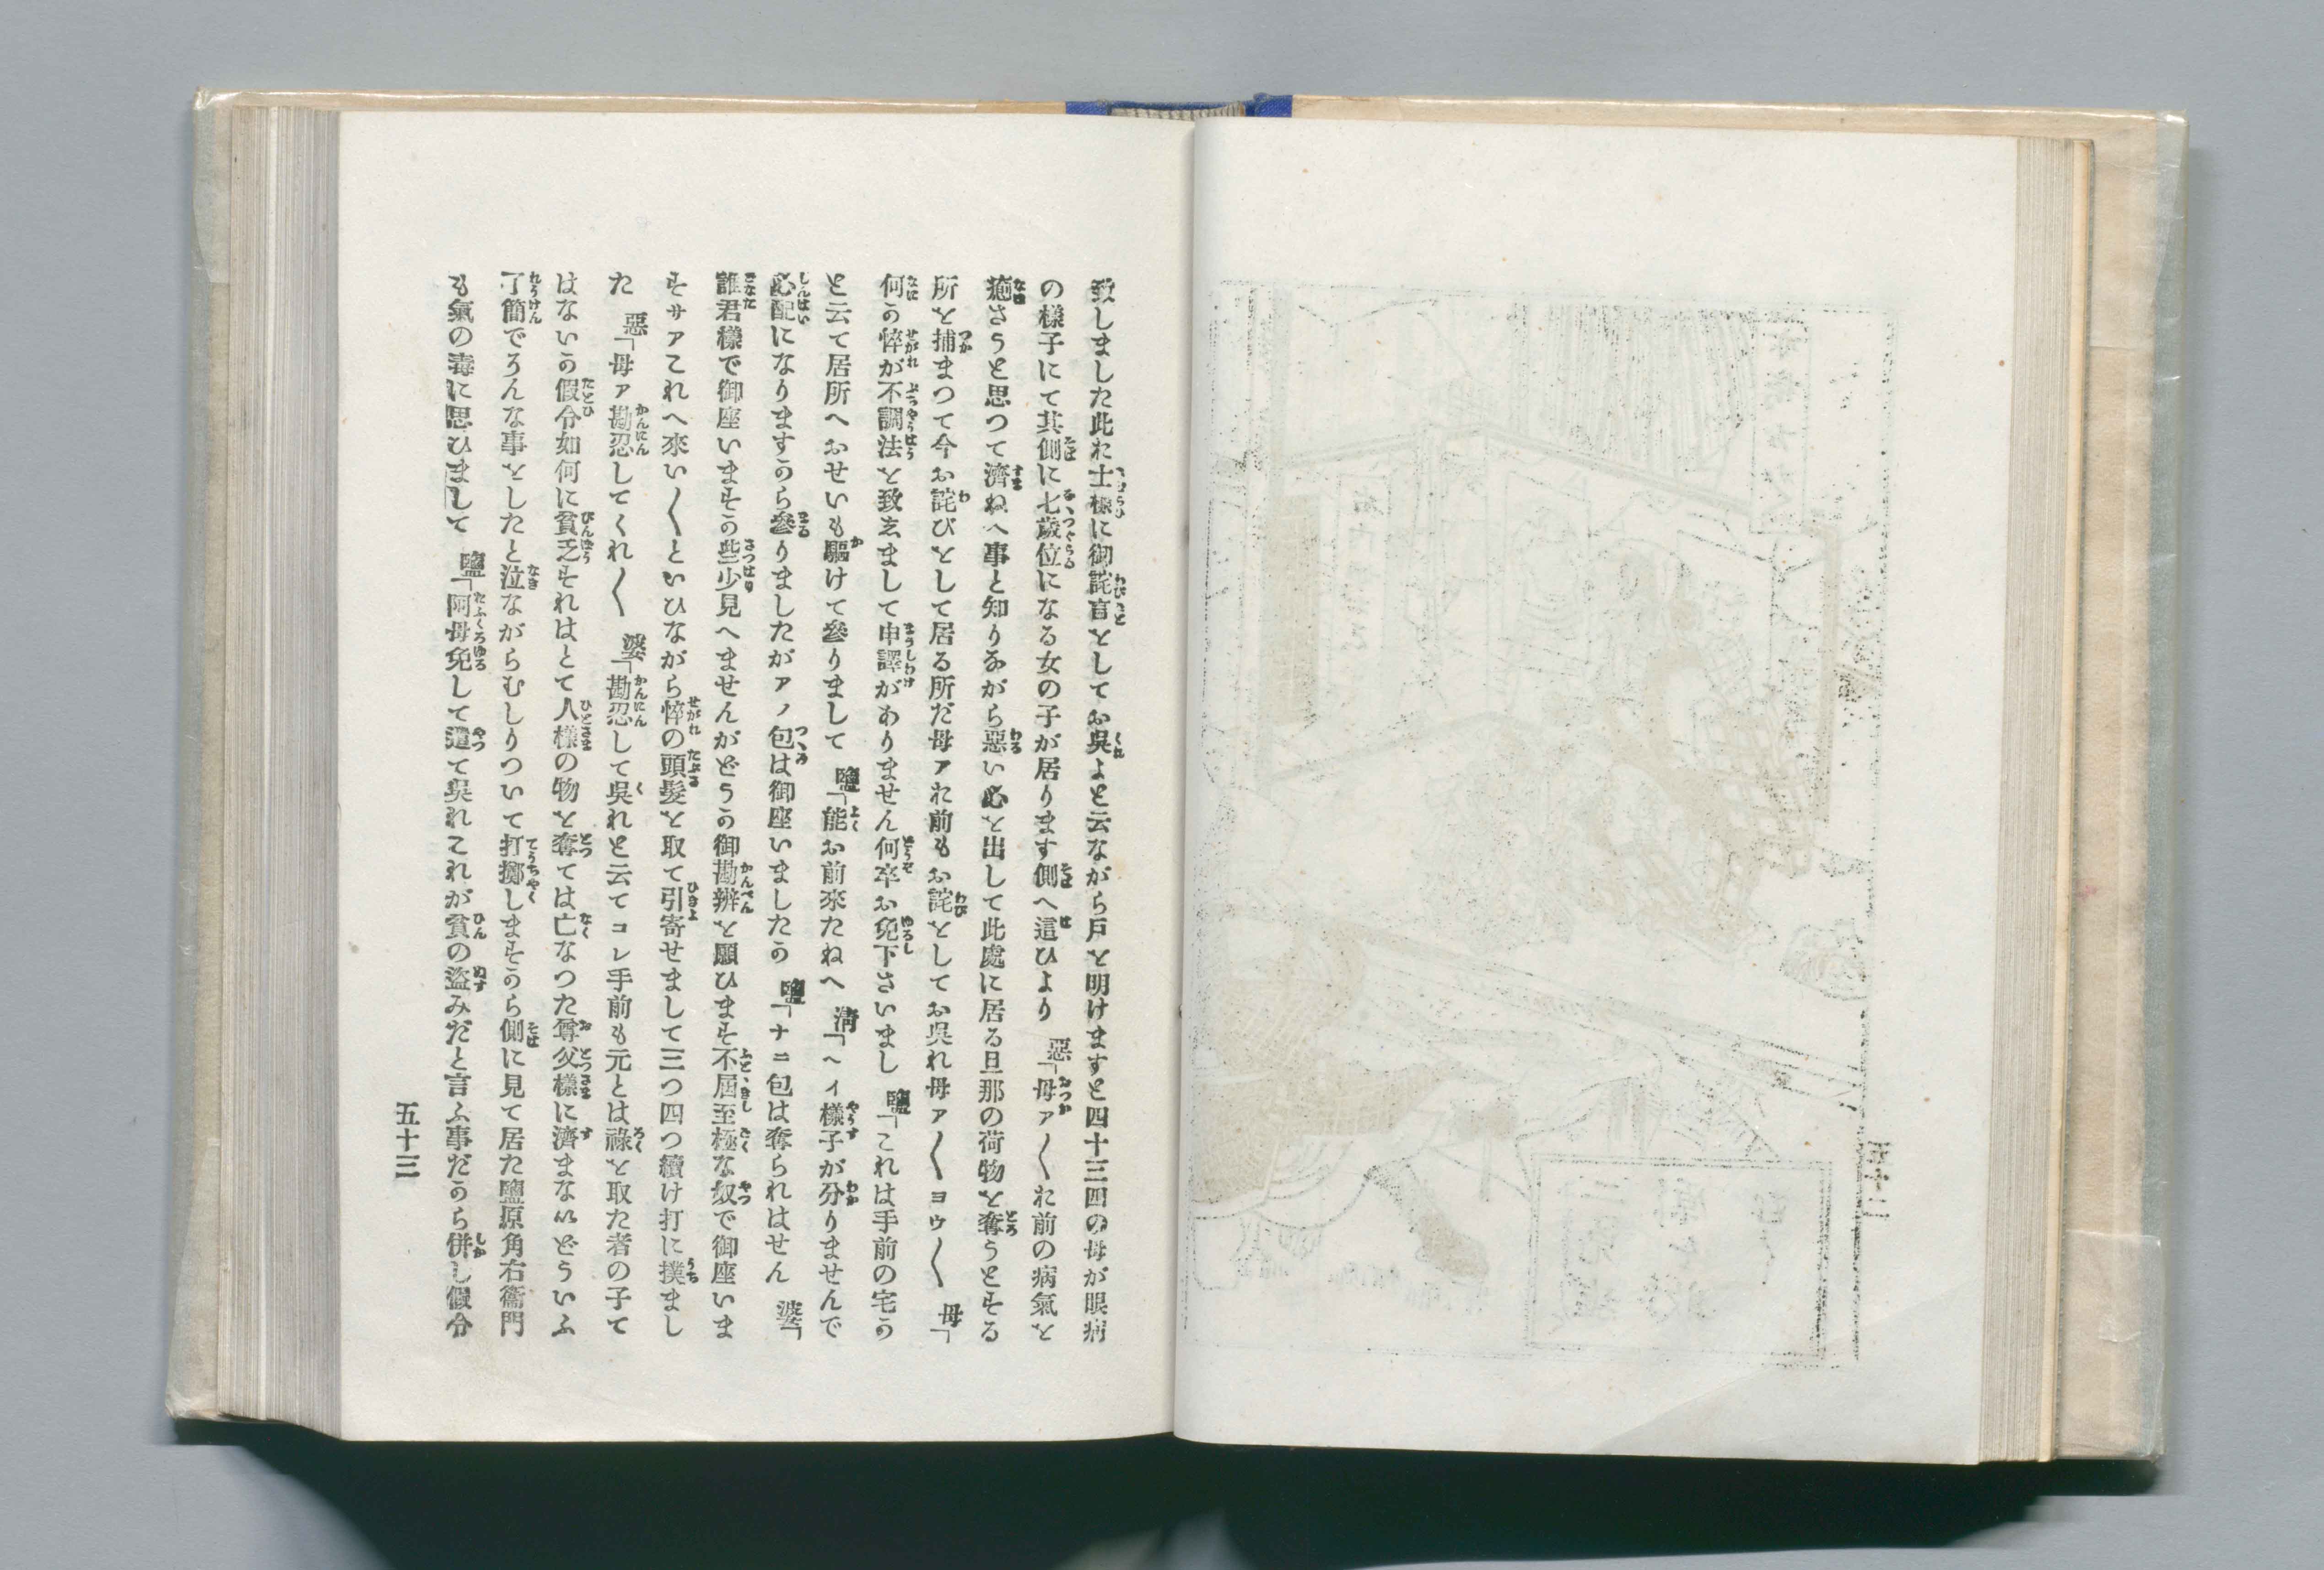 致しました此れ士樣に御詫言をしてお呉よと云ながら戸を明けますと四十三四の母が眼病
の樣子にて其側に七歳位になる女の子が居ります側へ這ひより　惡「母ァ〱れ前の病氣を
癒さうと思つて濟ねへ事と知りながら惡い心を出して此處に居る旦那の荷物を奪うとする
所を捕まつて今お詫びをして居る所だ母アれ前もお詫をしてお呉れ母ァ〱ヨゥ〱　母「
何か悴が不調法を致しまして申譯がありません何卒お免下さいまし　鹽「これは手前の宅か
と云て居所へおせいも驅けて參りまして　鹽「能お前來たねへ　淸「ヘイ樣子が分りませんで
心配になりますから參りましたがアノ包は御座いましたか　鹽「ナニ包は奪られはせん　婆「
誰君樣で御座いますか些少見へませんがどうか御勘辨を願ひます不屆至極な奴で御座いま
すサアこれへ來い〱といひながら悴の頭髮を取て引寄せまして三つ四つ續け打に撲まし
た　惡「母ァ勘忍してくれ〱　婆「勘忍して呉れと云てコレ手前も元とは祿を取た者の子て
はないか假令如何に貧乏すればとて人樣の物を奪ては亡なつた尊父樣に濟まないどういふ
了簡でろんな事をしたと泣ながらむしりついて打擲しますから側に見て居た鹽原角右衞門
も氣の毒に思ひまして　鹽「阿母免して遣て呉れこれが貧の盜みだと言ふ事だから併し假令
五十三
五十二